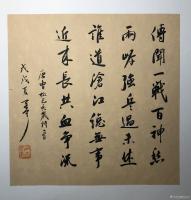 傳聞一戰百神愁
兩岸強兵過未休
誰道滄江總無事
近來長共血爭流
唐曹松己亥歲詩
戊戌夏